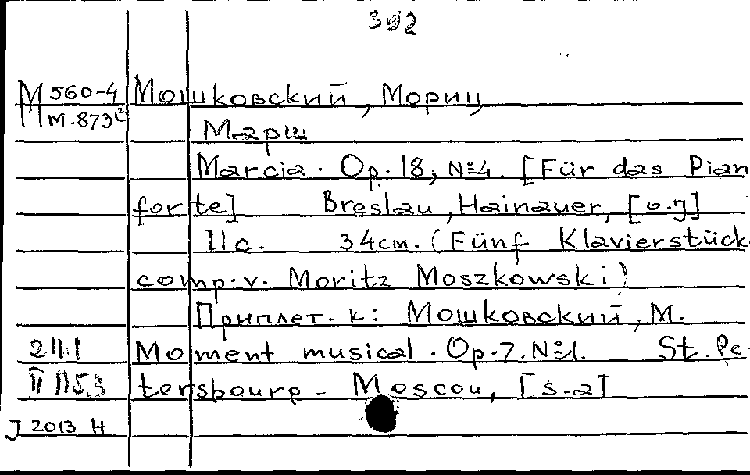 392
M 560-4 Мошковский, Мориц
М-873
Марш
Marcia. Op. 18, №4. [Für das Pian
forte] Breslau, Hainauer, [o.J]
11 с. 34 cm. (Fünf Klavierstück
comp. v. Moritz Moszkowski)
Приплет. к: Мошковский, М.
Moment musical. Op. 7. №1. St. Pe-
tersbourg - Moscou, [s.a]
J 2013 H